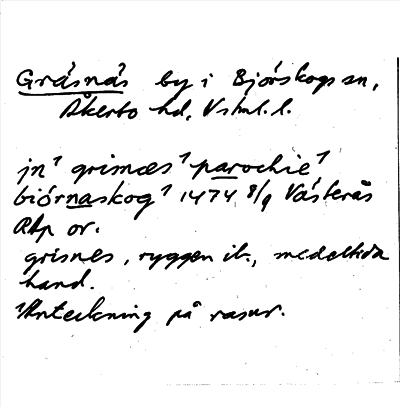 Gräsnäs by i Björskogs sn,
Åkerbo hd, Vstml. l.
jn¹ grimæs¹ parochie¹
biörnaskog¹ 1474 8/9 Västerås
RAp or.
grisnes, ryggen ib., medeltida
hand.
¹Anteckning på rasur.